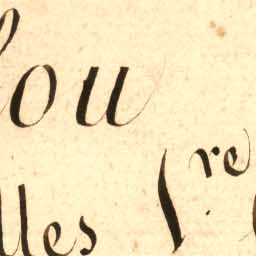 lou
lles 1.re